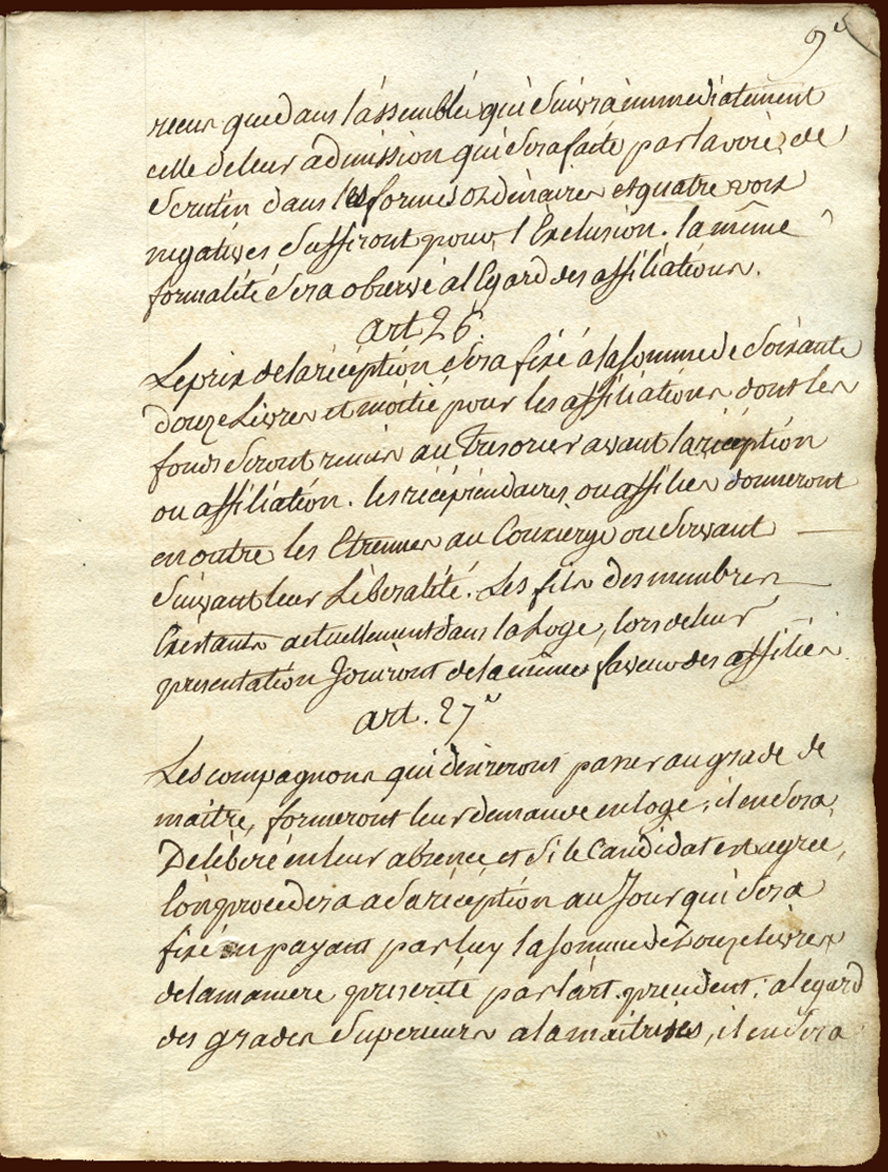 9e
recus que dans l'assemblée qui suivra immediatement
celle de leur admission qui sera faite par la voie de
scrutin dans les formes ordinaires et quatre voix
negatives suffiront pour l'Exclusion. la même
formalité sera observé al Egard des affiliations.
art 26.
Le prix de la réception sera fixé a la somme de soixante
douze Livres et moitié pour les affiliations dont les
fonds seront remis au Tresorier avant la réception
ou affiliation. les récépiendaires ou affilies donneront
en outre les Etrennes au Concierge ou servant
suivant leur Liberalité. Les fils des membres
Existants actuellement dans la Loge, lors de leur
presentation Jouiront de la même faveur des affiliés.
art. 27e
Les compagnons qui désireront passer au grade de
maitre, formeront leur demande en loge; il en sera
Deliberé en leur absence, et si le Candidat est agrée,
lon procedera a sa réception au Jour qui sera
fixé en payant par luy la somme de Douze livres
de la maniere prescrite par l'art. précédent; a legard
des grades superieurs a la maitrises, il en sera